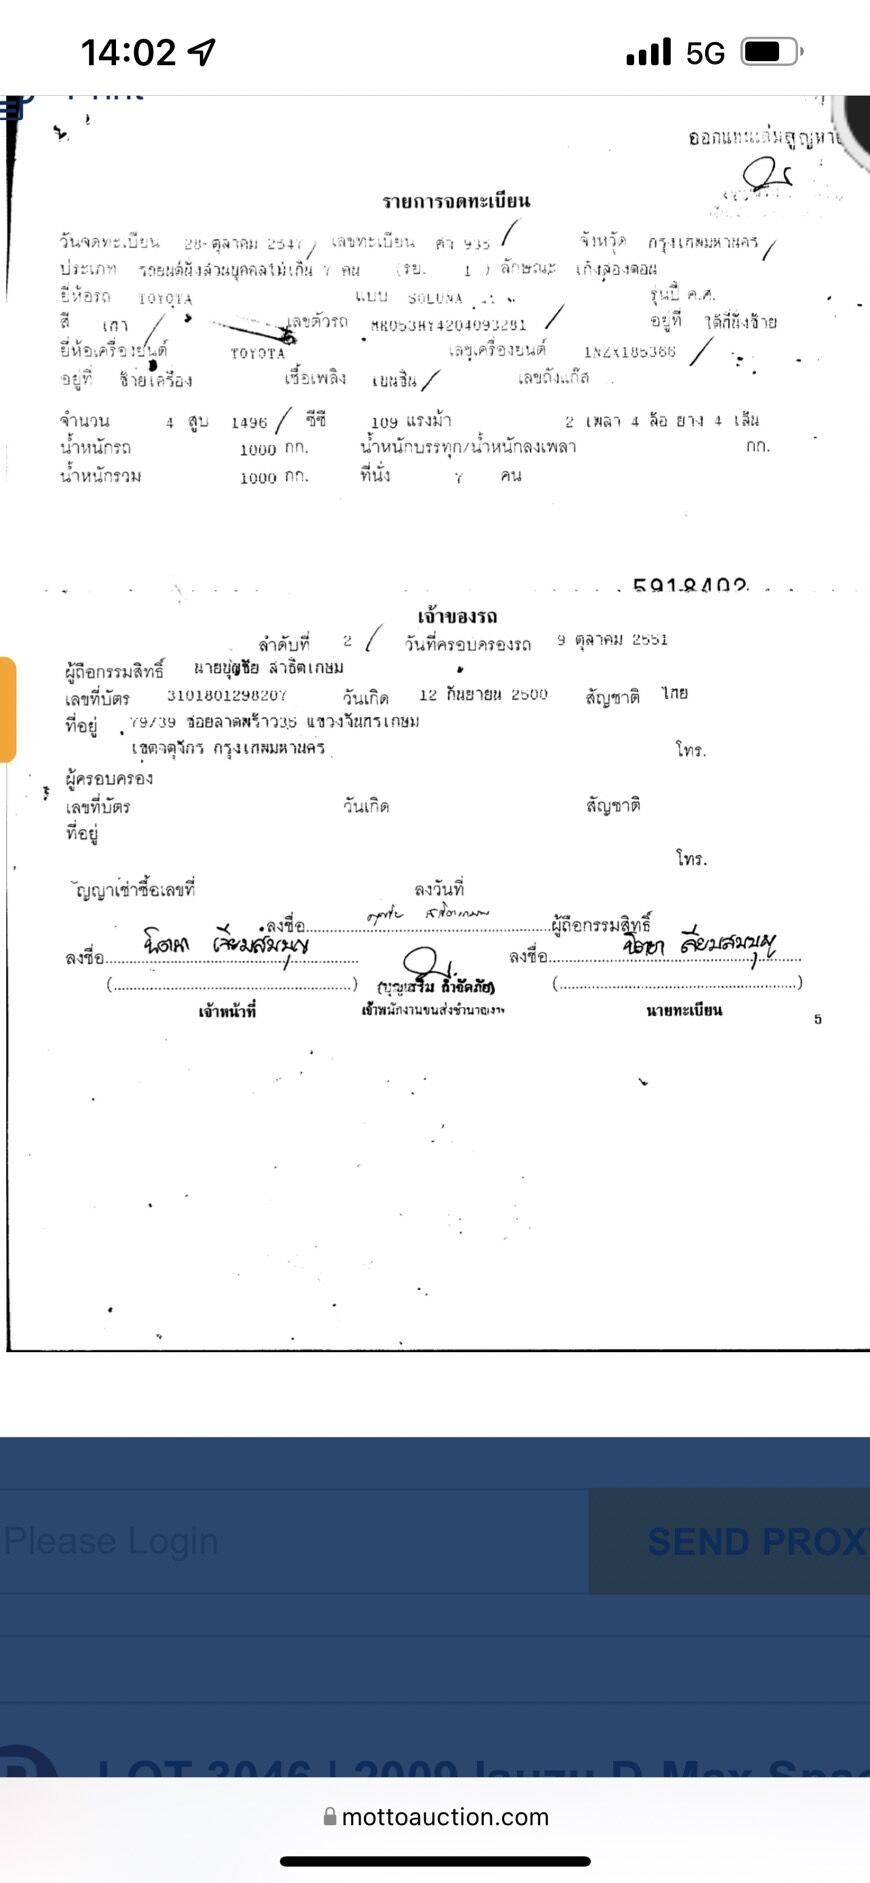 14:02 5G
Print
ออกแทนเล่มสูญหาย
รายการจดทะเบียน
วันจดทะเบียน 28 ตุลาคม 2547 เลขทะเบียน 935 จังหวัด กรุงเทพมหานคร
ประเภท รถยนต์นั่งส่วนบุคคลไม่เกิน 7 คน (รย. 1 ) ลักษณะ เก๋งสองตอน
ยี่ห้อรถ TOYOTA แบบ SOLUNA รุ่นปี ค.ศ.
สี เทา เลขตัวรถ MR053HY4204093281 อยู่ที่ ใต้ที่นั่งซ้าย
ยี่ห้อเครื่องยนต์ TOYOTA เลขเครื่องยนต์ 1NZX185366
อยู่ที่ ซ้ายเครื่อง เชื้อเพลิง เบนซิน เลขถังแก๊ส
จำนวน 4 สูบ 1496 ซีซี 109 แรงม้า 2 เพลา 4 ล้อ ยาง 4 เส้น
น้ำหนักรถ 1000 กก. น้ำหนักบรรทุก/น้ำหนักลงเพลา กก.
น้ำหนักรวม 1000 กก. ที่นั่ง 7 คน
5918402
เจ้าของรถ
ลำดับที่ 2 วันที่ครอบครองรถ 9 ตุลาคม 2551
ผู้ถือกรรมสิทธิ์ นายบุญชัย สาธิตเกษม
เลขที่บัตร 3101801298207 วันเกิด 12 กันยายน 2500 สัญชาติ ไทย
ที่อยู่ 79/39 ซอยลาดพร้าว35 แขวงจันทรเกษม
เขตจตุจักร กรุงเทพมหานคร โทร.
ผู้ครอบครอง
เลขที่บัตร วันเกิด สัญชาติ
ที่อยู่
โทร.
สัญญาเช่าซื้อเลขที่ ลงวันที่
ลงชื่อ ผู้ถือกรรมสิทธิ์
ลงชื่อ ลงชื่อ
( ) ( )
เจ้าหน้าที่ เจ้าพนักงานขนส่งชำนาญงาน นายทะเบียน 5
Please Login SEND PROX
LOT 3046 | 2009 Isuzu D-Max Spac
mottoauction.com